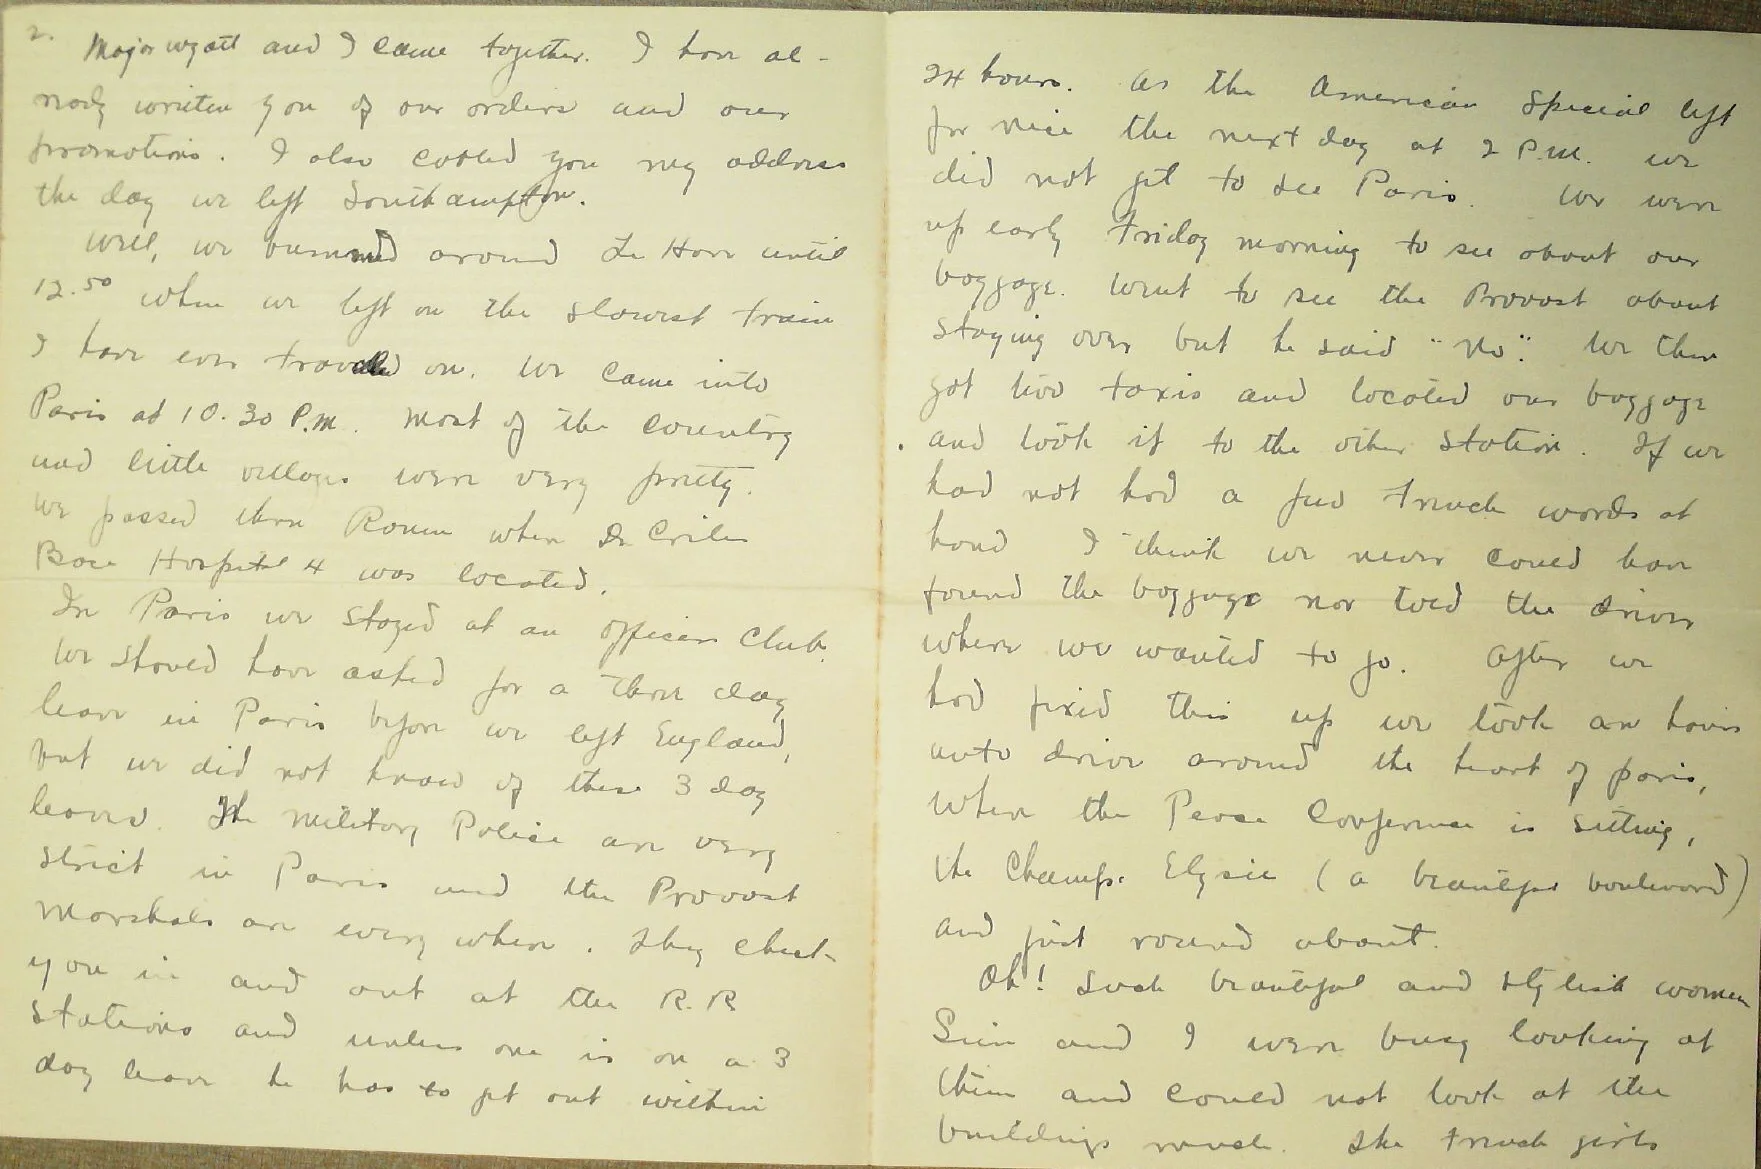 2.
Major Wyatt and I came together. I have al-
ready written you of our orders and our
promotions. I also cabled you my address
the day we left Southampton.
Well, we bummed around Le Havre until
12.50 when we left on the slowest train
I have ever traveled on. We came into
Paris at 10.30 P.M. Most of the country
and little villages were very pretty.
We passed thru Rouen where Dr Criles
Base Hospital 4 was located.
In Paris we stayed at an officers club.
We should have asked for a three day
leave in Paris before we left England,
but we did not know of these 3 day
leaves. The Military Police are very
strict in Paris and the Provost
Marshals are every where. They check
you in and out at the R.R.
stations and unless one is on a 3
day leave he has to get out within
24 hours. As the American Special left
for Nice the next day at 2 P.M. we
did not get to see Paris. We were
up early Friday morning to see about our
baggage. Went to see the Provost about
staying over but he said "No". We then
got two taxis and located our baggage
and took it to the other station. If we
had not had a few French words at
hand I think we never could have
found the baggage nor told the driver
where we wanted to go. After we
had fixed this up we took an hours
auto drive around the heart of Paris,
where the Peace Conference is sitting,
the Champs Elysee (a beautiful boulevard)
and just round about.
Oh! Such beautiful and stylish women
and I were busy looking at
them and could not look at the
buildings much. The French girls